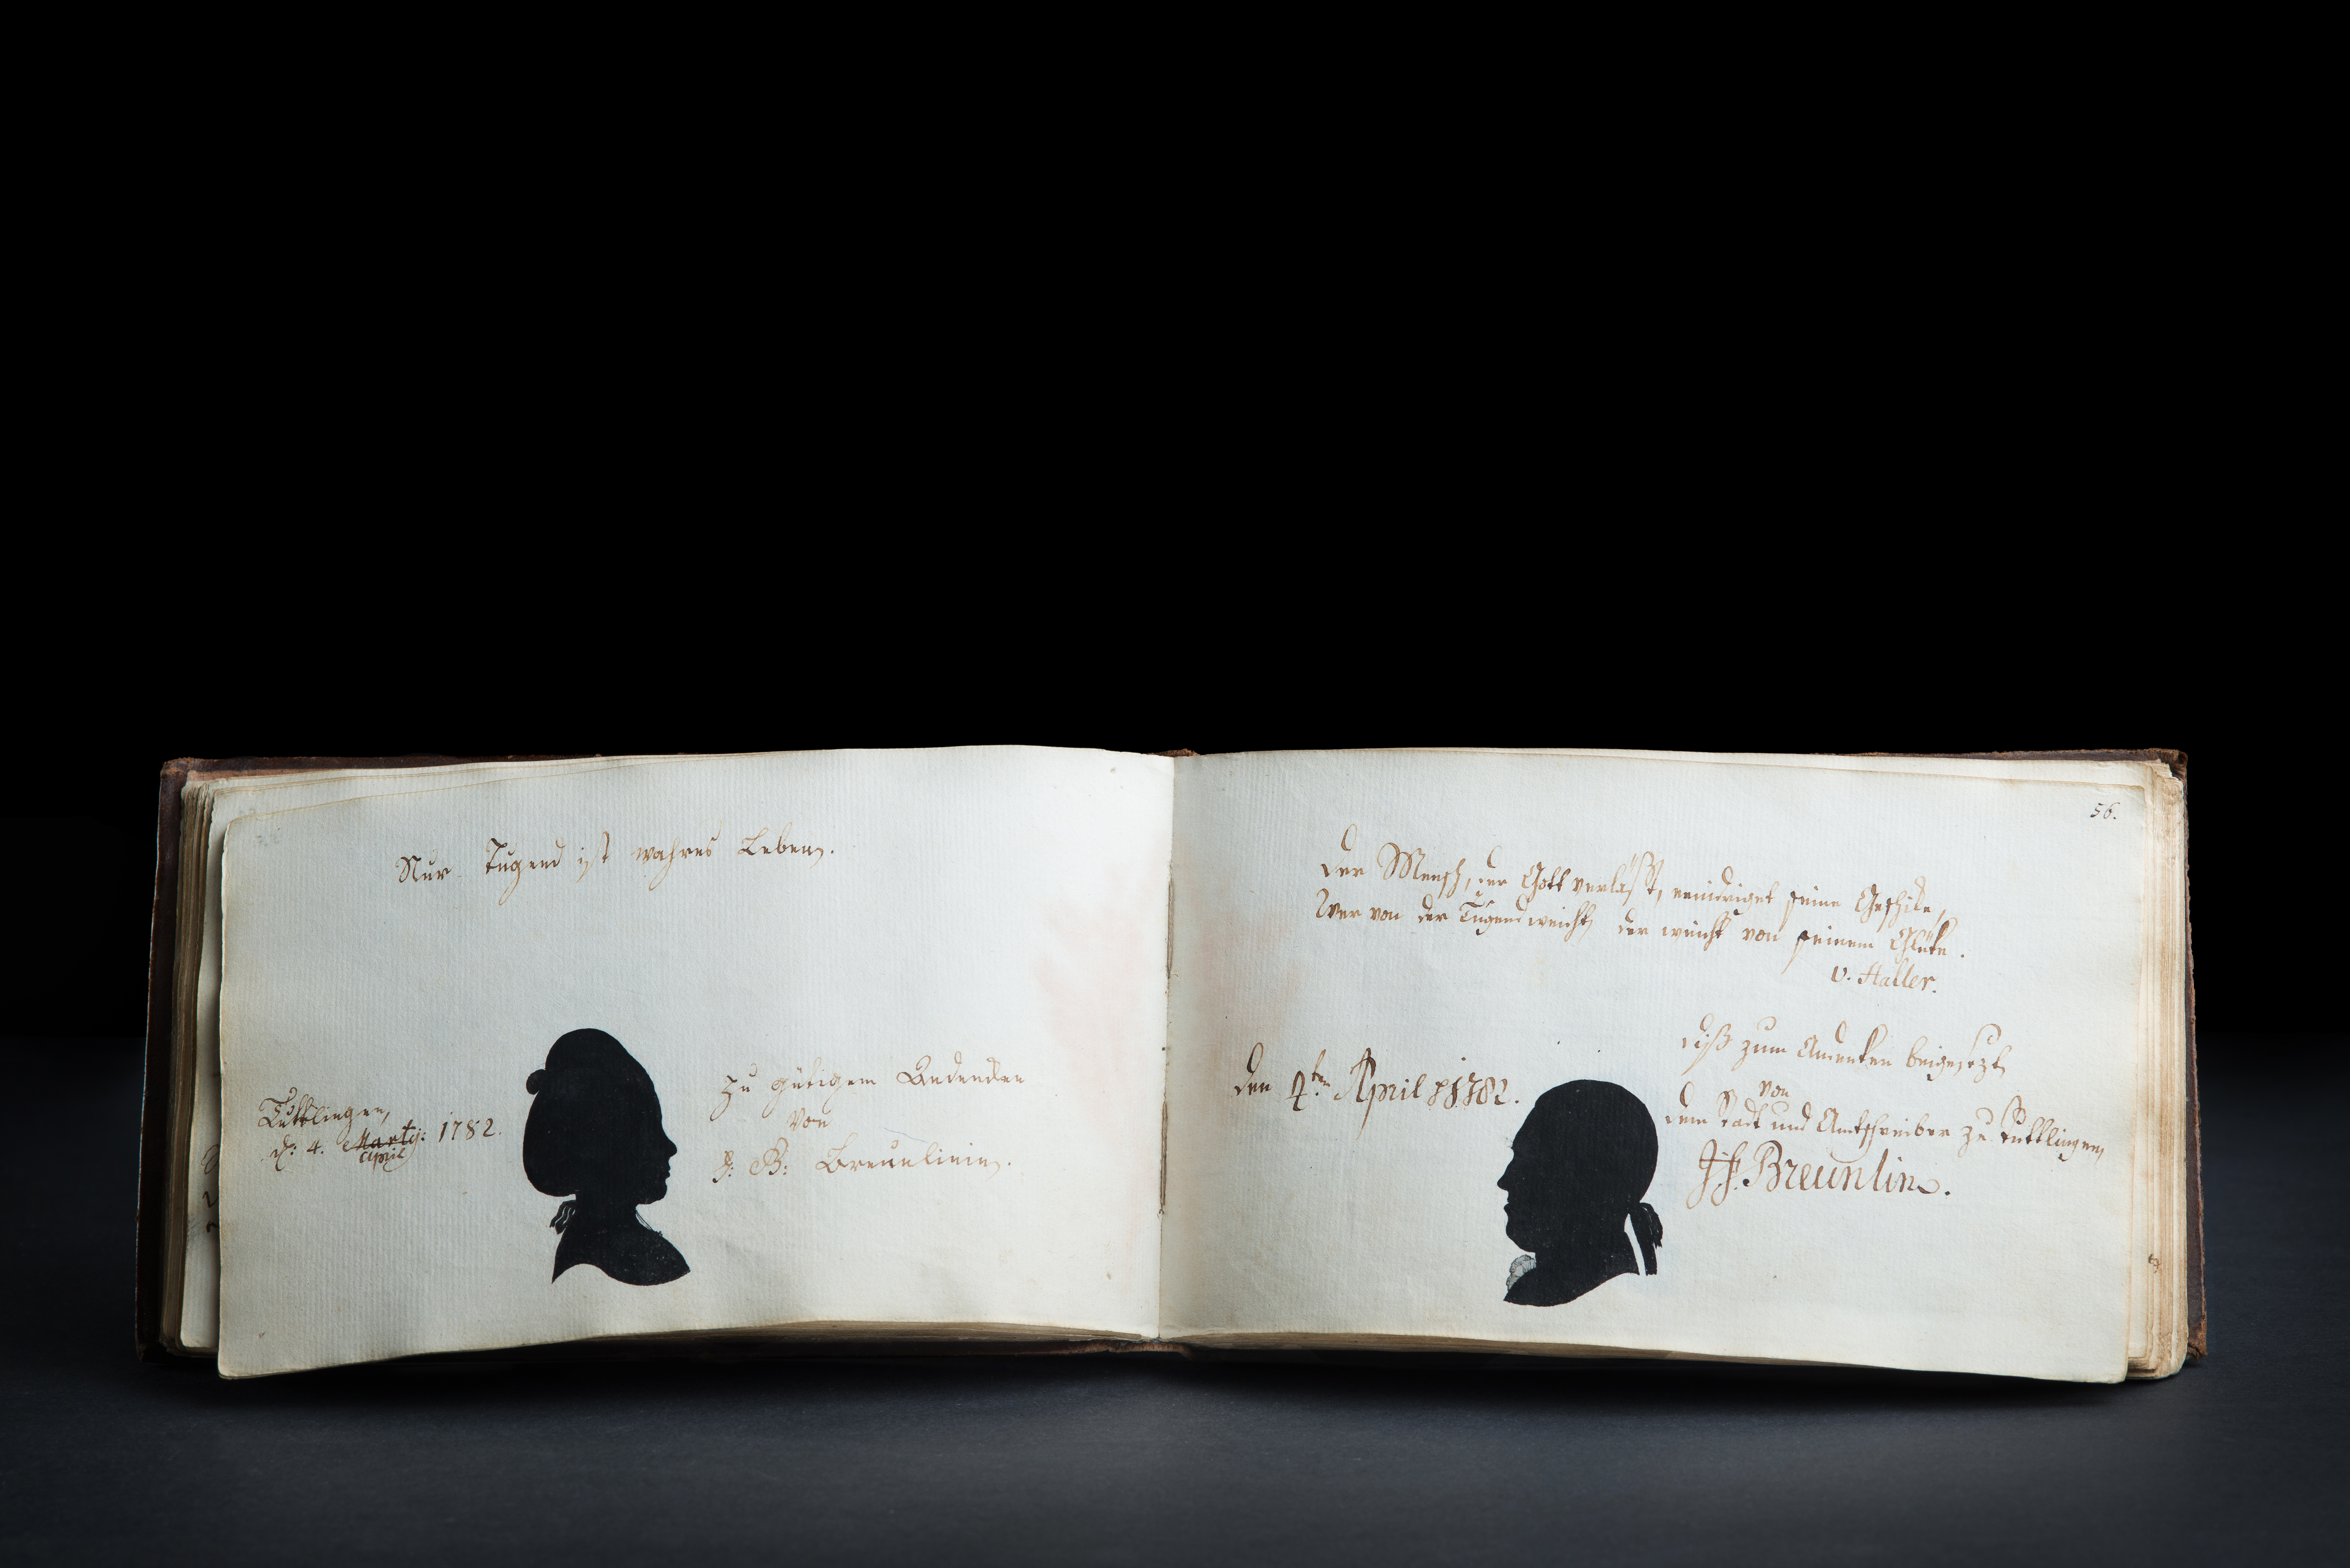 Nur Tugend ist wahres Leben.
Tuttlingen,
d: 4. Martij: 1782.
April
Zu gütigem Andenken
von
J: B: Breunlinin.
56.
Der Mensch, der Gott verläßt, erniedriget seine Geschike,
Wer von der Tugend weicht, der weicht von seinem Glüke.
v. Haller.
den 4.ten April 1782.
diß zum Andenken beigesezt
von
dem Stadt und Amtschreiber zu Tuttlingen,
Breunlin.